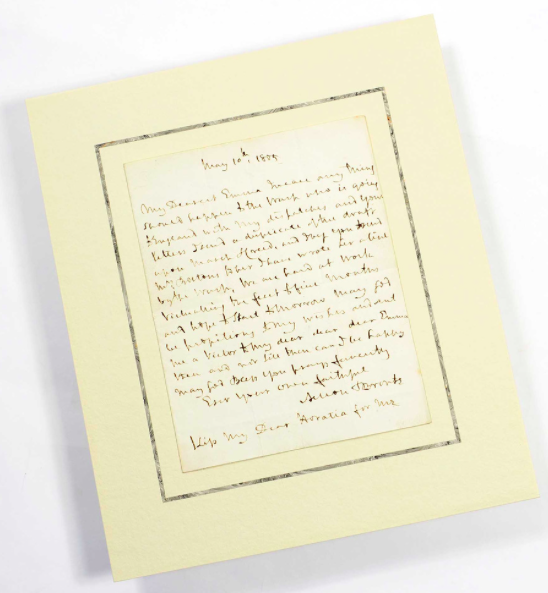 May 10th, 1805
My Dearest Emma in case any thing
should happen to the who is going
to England with My dispatches and your
letters I send a duplicate of the draft
upon Marsh & Creed, and may you send
Mrs Bolton's I have wrote her a line
by the We are hard at work
Victualling the fleet to five months
and hope to start tomorrow may God
be propitious to my wishes and send
me a Victor to my dear dear dear Emma
 and not till then can I be happy
may God bless you prays fervently
Ever your own faithful
Nelson & Bronte
Kiss My Dear Horatia for me